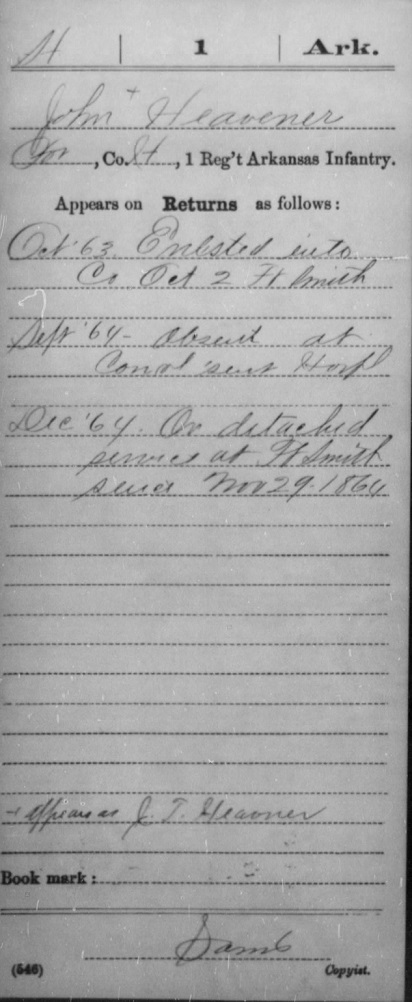 H | 1 | Ark.
John + Heavener
Cor, Co. H, 1 Reg't Arkansas Infantry.
Appears on Returns as follows:
Oct '63. Enlsted into
Co. Oct 2 Ft Smith
Sept '64 - Absent at
Conval'sent Hospl
Dec '64. On detached
service at Ft Smith
since Nov 29. 1864
+ appears as J. T. Heavner
Book mark:
(546)
Copyist.